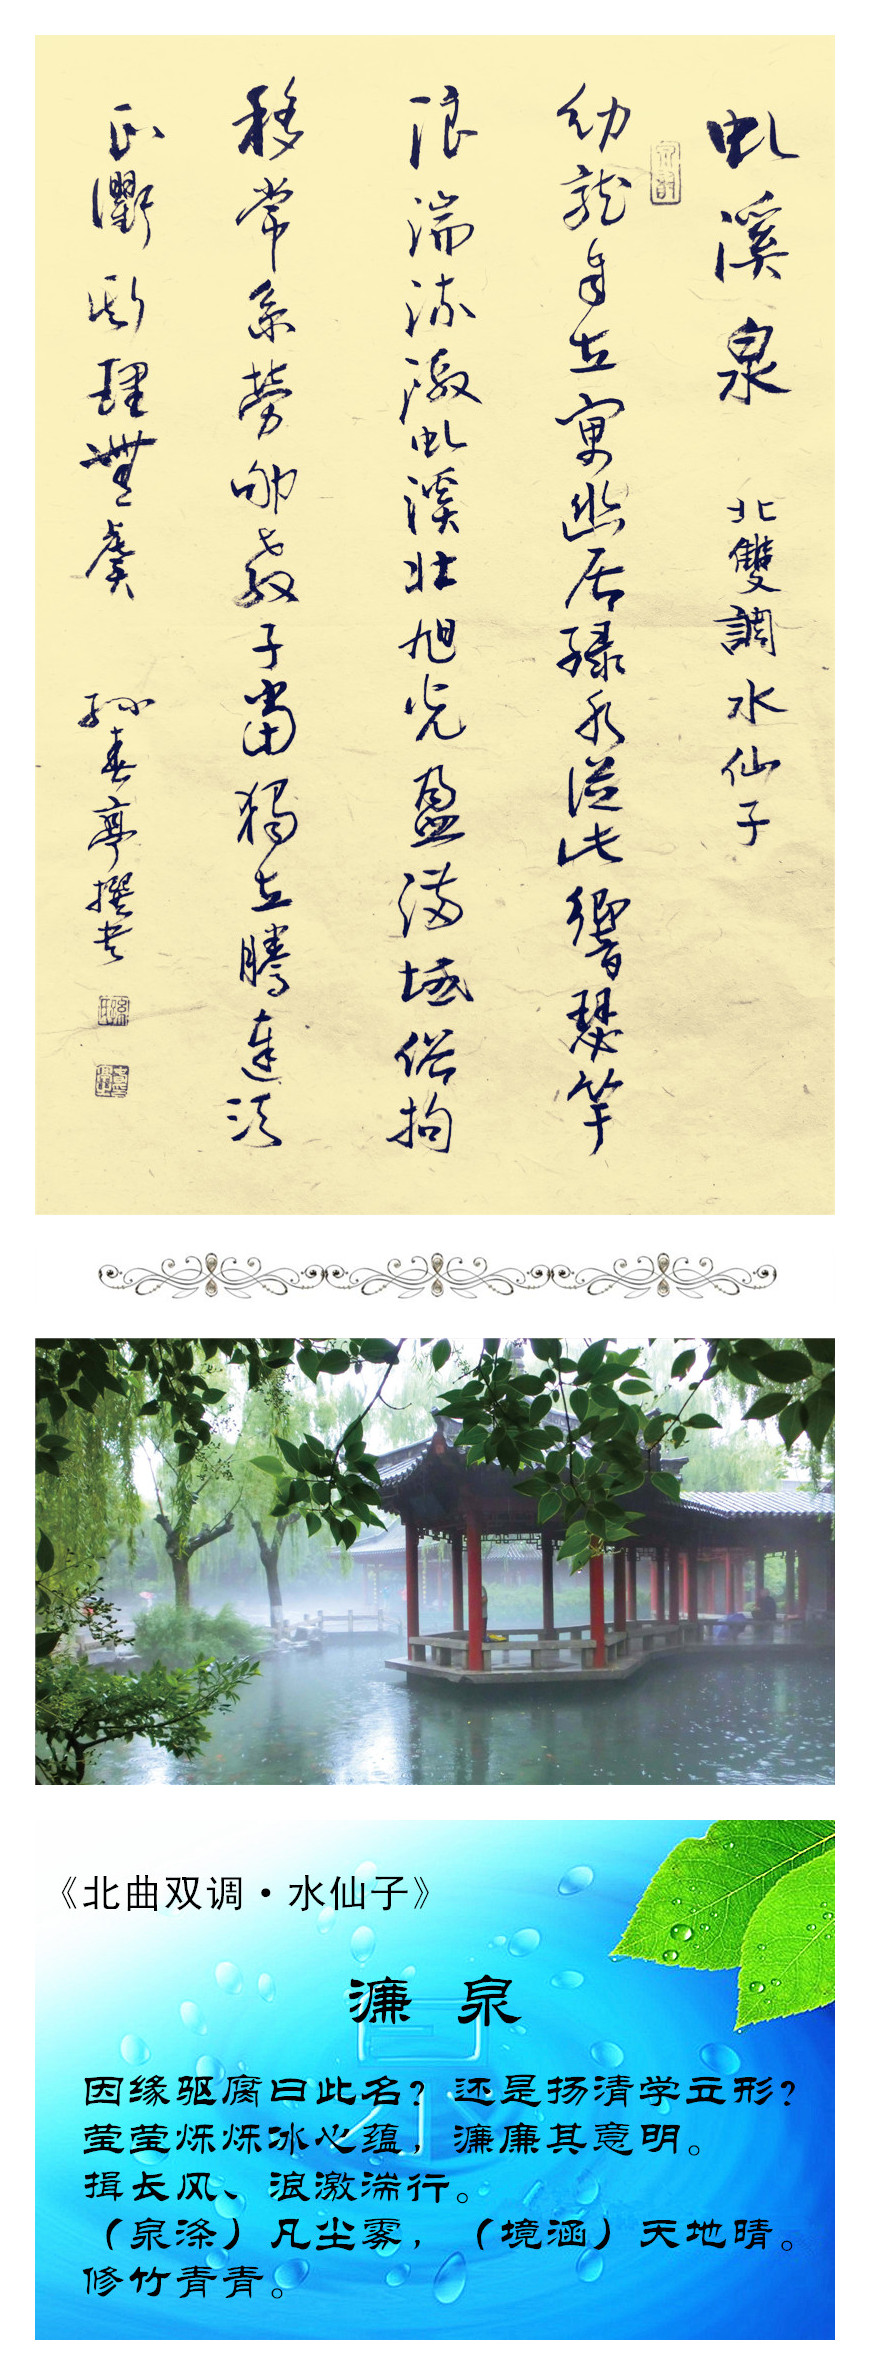 虬溪泉 北雙調水仙子
幼龍自立寓幽居綠水從此響瑟竽
浪湍流激虬溪壯旭光盈滿域俗拘
移常系勞教子當獨立騰達須
正衢斷理無虞 孫春亭撰書
《北曲双调·水仙子》
濂 泉
因缘驱腐曰此名？还是扬清学立形？
莹莹烁烁冰心蕴，濂廉其意明。
揖长风、浪激湍行。
（泉涤）凡尘雾，（境涵）天地晴。
修竹青青。